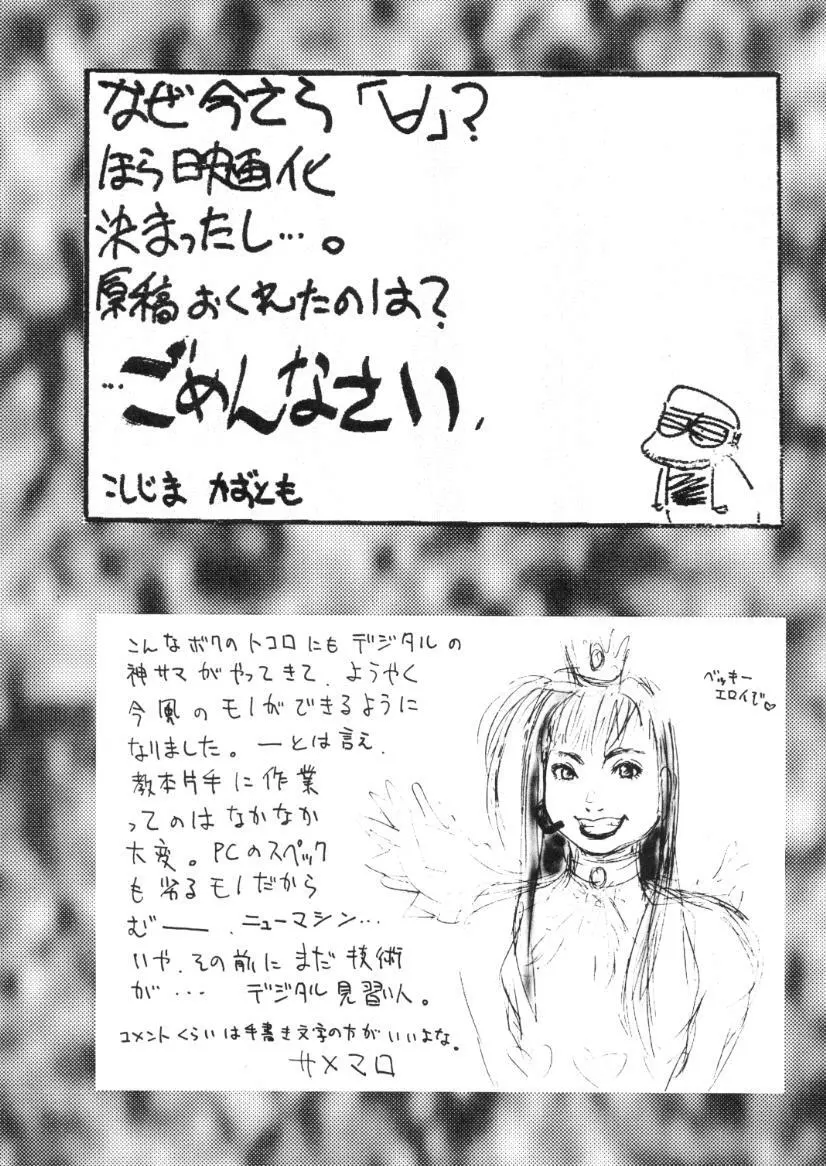 なぜ今さら「∀」?
ほら映画化
決まったし…。
原稿おくれたのは?
…ごめんなさい、
こしじま かずとも
こんなボクのトコロにもデジタルの
神サマがやってきて、ようやく
今風のモノができるように
なりました。―とは言え、
教本片手に作業
ってのはなかなか
大変。PCのスペック
も劣るモノだから
む――、ニューマシン…
いや、その前にまだ技術
が… デジタル見習い人。
コメントくらいは手書き文字の方がいいよな。
サメマロ
ベッキー
エロイで♡